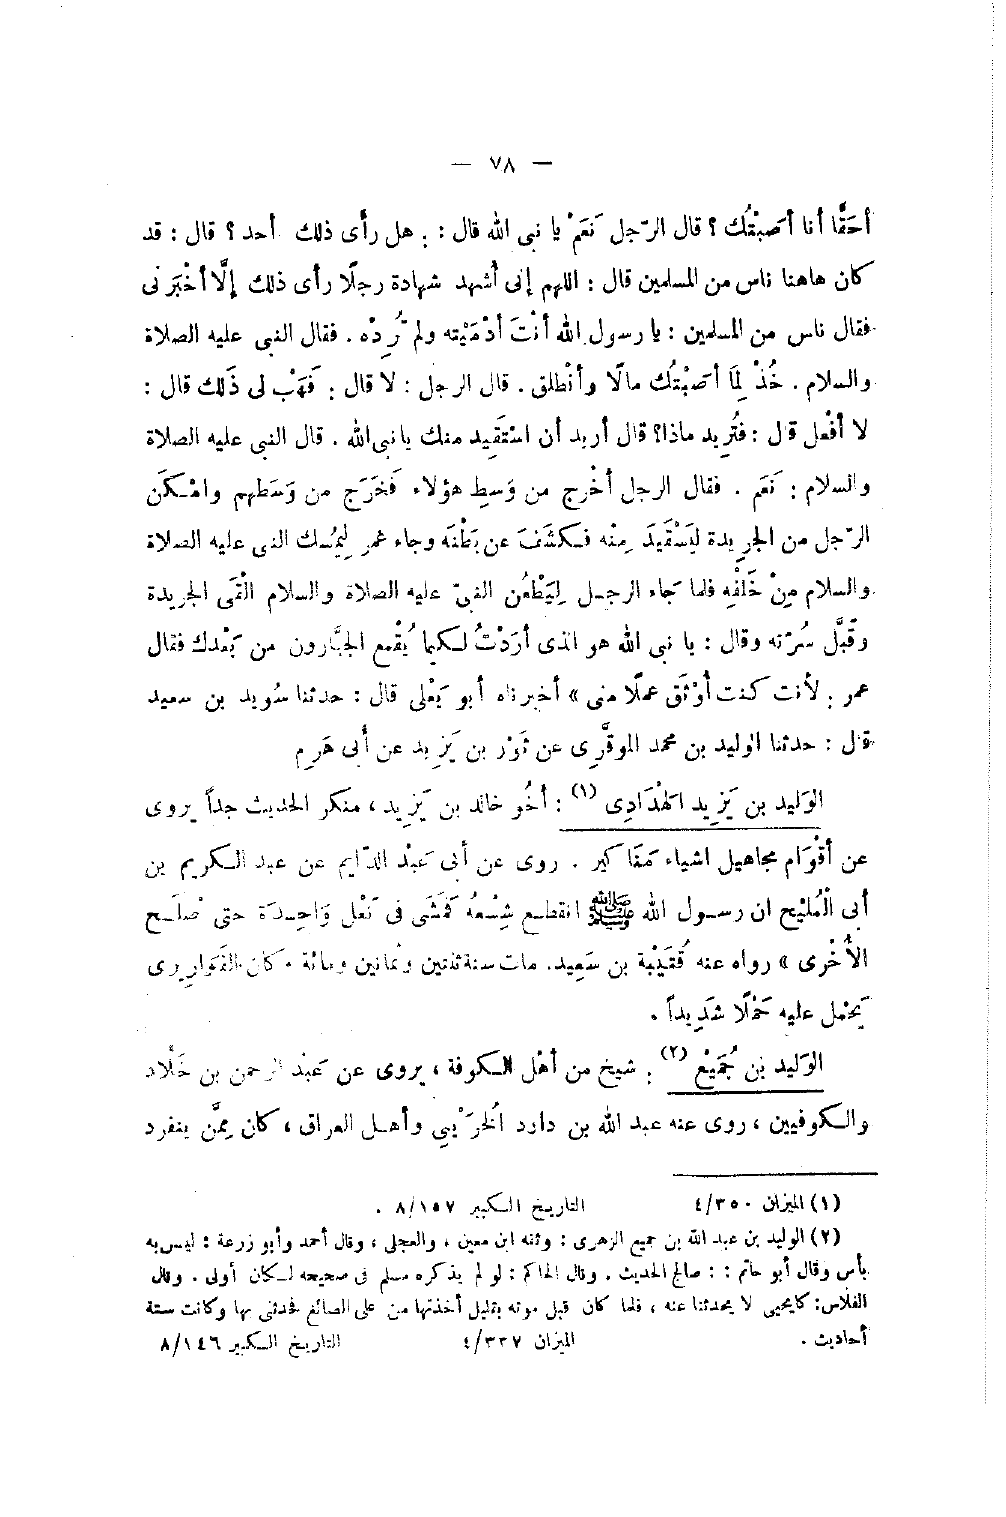 — ٧٨ —
أحَقًّا أنا أصَبْتُك ؟ قال الرّجل نَعَمْ يا نبى الله قال : هل رأى ذلك أحد ؟ قال : قد
كان هاهنا ناس من المسلمين قال : اللهم إنى أُشهد شهادة رجلًا رأى ذلك إلَّا أخْبَرَنى
فقال ناس من المسلمين : يا رسول الله أنْتَ أدْمَيْته ولم تُرِدْه . فقال النبى عليه الصلاة
والسلام . خُذْ لِمَا أصَبْتُك مالًا وأنْطلق . قال الرجل : لا قال : فَهَبْ لى ذَلك قال :
لا أفْعل قال : فتُريد ماذا؟ قال أريد أن استَقِيد منك يا نبى الله . قال النبى عليه الصلاة
والسلام : نَعَم . فقال الرجل أخْرج من وَسطِ هؤلاء فَخَرَج من وَسَطهم وامْكَنَ
الرّجل من الجريدة ليَسْتَقيدَ مِنْه فكَشَفَ عن بَطْنَه وجاء عمر لِيُمْسك النبى عليه الصلاة
والسلام مِنْ خَلْفِه فلما جاء الرجل لِيَطْعُن النبىّ عليه الصلاة والسلام ألْقَى الجريدة
وقَبَّل سُرّته وقال : يا نبى الله هو الذى أرَدْتُ لكيما يُقْمع الجبَّارون من بَعْدك فقال
عمر : لأنت كنت أوْثَق عملًا منى » أخبرناه أبو يَعْلى قال : حدثنا سُويد بن سعيد
قال : حدثنا الوليد بن محمد الموقَّرى عن ثَوْر بن يَزيد عن أبى هَرِم
الوَليد بن يَزيد الهْدَادِى (١) : أخُو خالد بن يَزيد ، منكر الحديث جداً يروى
عن أقْوَام مجاهيل اشياء مَنَاكير . روى عن أبى عَبْد الدّايم عن عبد الكريم بن
أبى الْمُليْح ان رسول الله ﷺ انقطع شِسْعهُ فمَشَى فى نَعْل وَاحِدَة حتى صْلَح
الأُخْرى » رواه عنه قُتَيْبة بن سَعِيد. مات سنة ثنتين وثمانين ومائة . كان القَوارِيرى
يَحْمل عليه حَمْلًا شَديداً .
الوَليد بن جُمَيْع (٢) : شيخ من أهْل الكوفة ، يروى عن عَبْد الرحمن بن خَلَّاد
والكوفيين ، روى عنه عبد الله بن دارد الْخرَيْبي وأهل العراق ، كان مِمَّن ينفرد
(١) الميزان ٤/٣٥٠ التاريخ الكبير ٨/١٥٧ .
(٢) الوليد بن عبد الله بن جميع الزهرى : وثقه ابن معين ، والعجلى ، وقال أحمد وأبو زرعة : ليس به
بأس وقال أبو حاتم : : صالح الحديث . وقال الحاكم : لو لم يذكره مسلم فى صحيحه لكان أولى . وقال
الفلاس: كايحيى لا يحدثنا عنه ، فلما كان قبل موته بقليل أخذتها من على الصائغ فحدثنى بها وكانت ستة
أحاديث . الميزان ٤/٣٣٧ التاريخ الكبير ٨/١٤٦